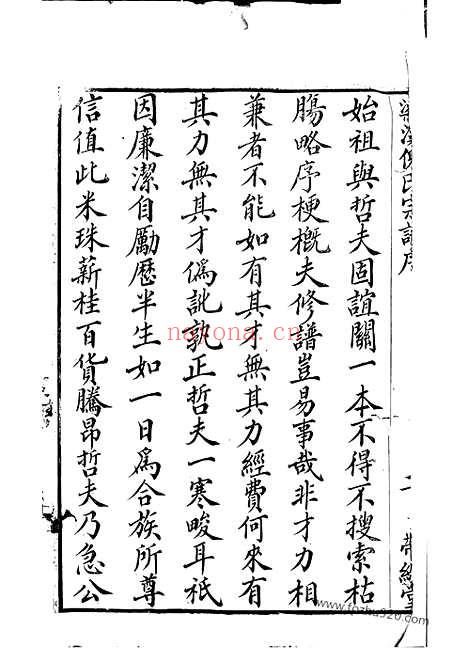 宗譜序
始祖與哲夫固誼關一本不得不搜索枯
腸略序梗槪夫修譜豈易事哉非才力相
兼者不能如有其才無其力經費何來有
其力無其才僞訛孰正哲夫一寒畯耳祇
因廉潔自勵歷半生如一日爲合族所尊
信值此米珠薪桂百貨騰昂哲夫乃急公
nayona.cn
www.fozhu920.com